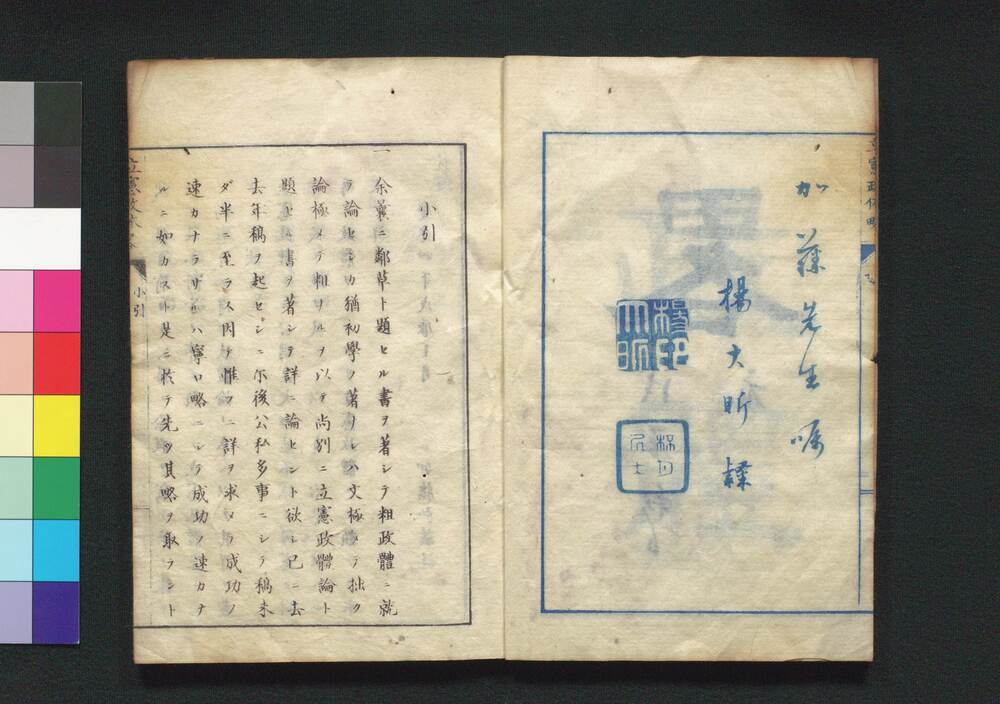 加藤先生嘱
楊大昕隷
立憲政体略
小引
一余曩ニ鄰草ト題セル書ヲ著シテ粗政體ニ就
テ論セシカ猶初學ノ著ナレハ文極メテ拙ク
論極メテ粗ナルヲ以テ尚別ニ立憲政體論ト
題セル書ヲ著シテ詳ニ論セント欲シ已ニ去
去年稿ヲ起セシニ尓後公私多事ニシテ稿未
ダ半ニ至ラス因テ惟フニ詳ヲ求メテ成功ノ
速カナラザルハ寧ロ略ニシテ成功ノ速カナ
ルニ如カスト是ニ於テ先ツ其略ヲ取ラント
小引